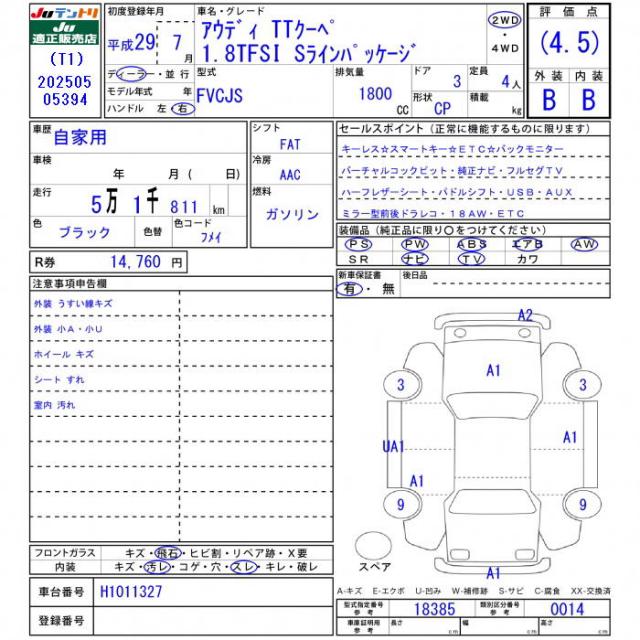 Juテントリ
Ju
適正販売店
(T1)
202505
05394
初度登録年月
平成29 年 7 月
車名・グレード
アウディ TTクーペ
1.8TFSI Sラインパッケージ
2WD
・
4WD
評価点
(4.5)
外装 内装
B B
ディーラー・並行
モデル年式 年
ハンドル 左・右
型式
FVCJS
排気量
1800
CC
ドア 3
定員 4人
形状 CP
積載 kg
車歴 自家用
車検 年 月 ( 日)
走行 5万 1千 811 km
色 ブラック
色替
色コード
フメイ
シフト
FAT
冷房
AAC
燃料
ガソリン
セールスポイント (正常に機能するものに限ります)
キーレス☆スマートキー☆ETC☆バックモニター
バーチャルコックピット・純正ナビ・フルセグTV
ハーフレザーシート・パドルシフト・USB・AUX
ミラー型前後ドラレコ・18AW・ETC
装備品 (純正品に限り〇をつけてください)
PS PW ABS エアB AW
SR ナビ TV カワ
R券 14,760 円
新車保証書
有・無
後日品
注意事項申告欄
外装 うすい線キズ
外装 小A・小U
ホイール キズ
シート すれ
室内 汚れ
A2
A1
3
3
UA1
A1
A1
9
9
スペア
A1
フロントガラス キズ・飛石・ヒビ割・リペア跡・X要
内装 キズ・汚レ・コゲ・穴・スレ・キレ・破レ
A-キズ E-エクボ U-凹み W-補修跡 S-サビ C-腐食 XX-交換済
車台番号 H1011327
登録番号
型式指定番号
参考
18385
類別区分番号
参考
0014
車庫証明用
参考
長さ cm
幅 cm
高さ cm